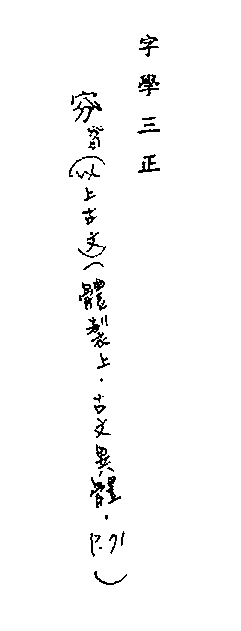 字學三正
(以上古文)(體製上.古文異體.P.91)